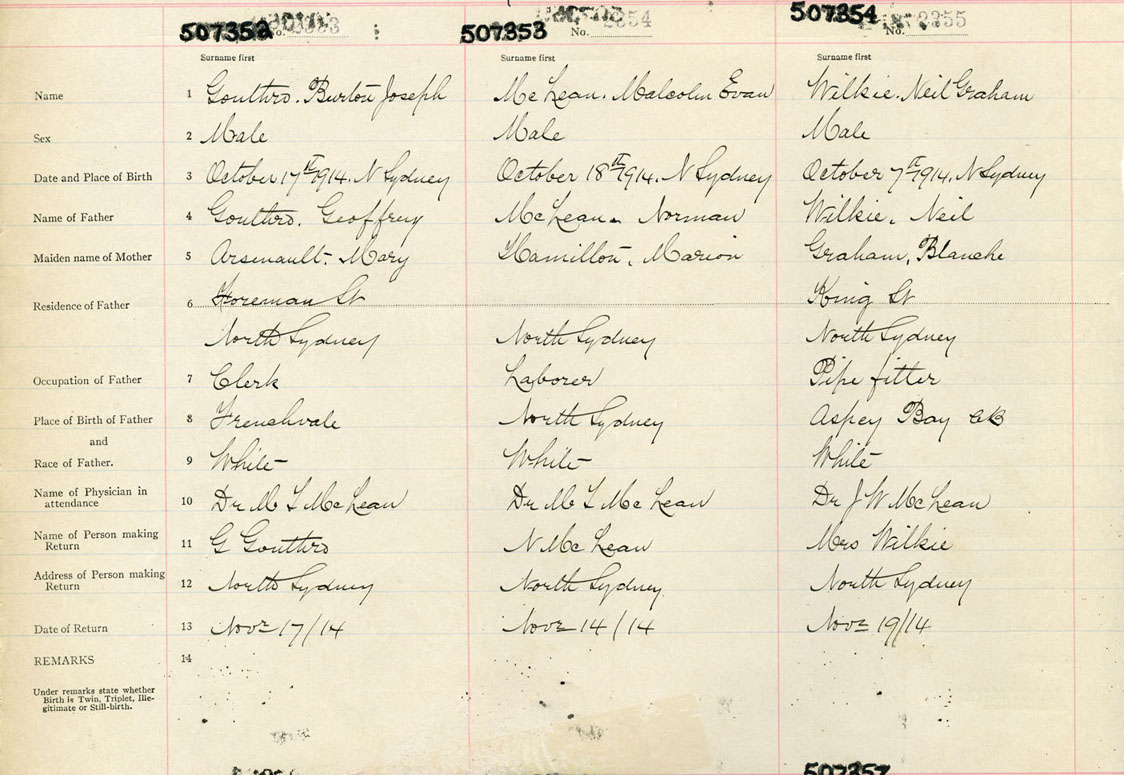 507352 507353 No. 2354 507354 No. 2355
Surname first Surname first Surname first
Name 1 Gouthro. Burton Joseph McLean. Malcolm Evan Wilkie. Neil Graham
Sex 2 Male Male Male
Date and Place of Birth 3 October 17th 1914. N Sydney October 18th 1914. N Sydney October 7th 1914. N Sydney
Name of Father 4 Gouthro. Geoffrey McLean. Norman Wilkie. Neil
Maiden name of Mother 5 Arsenault. Mary Hamilton. Marion Graham, Blanche
Residence of Father 6 Foreman St King St
North Sydney North Sydney North Sydney
Occupation of Father 7 Clerk Laborer Pipe fitter
Place of Birth of Father 8 Frenchvale North Sydney Aspey Bay CB
and
Race of Father. 9 White White White
Name of Physician in
attendance 10 Dr M T McLean Dr M T McLean Dr J W McLean
Name of Person making
Return 11 G Gouthro N McLean Mrs Wilkie
Address of Person making
Return 12 North Sydney North Sydney North Sydney
Date of Return 13 Novr 17/14 Novr 14/14 Novr 19/14
REMARKS 14
Under remarks state whether
Birth is Twin, Triplet, Ille-
gitimate or Still-birth.